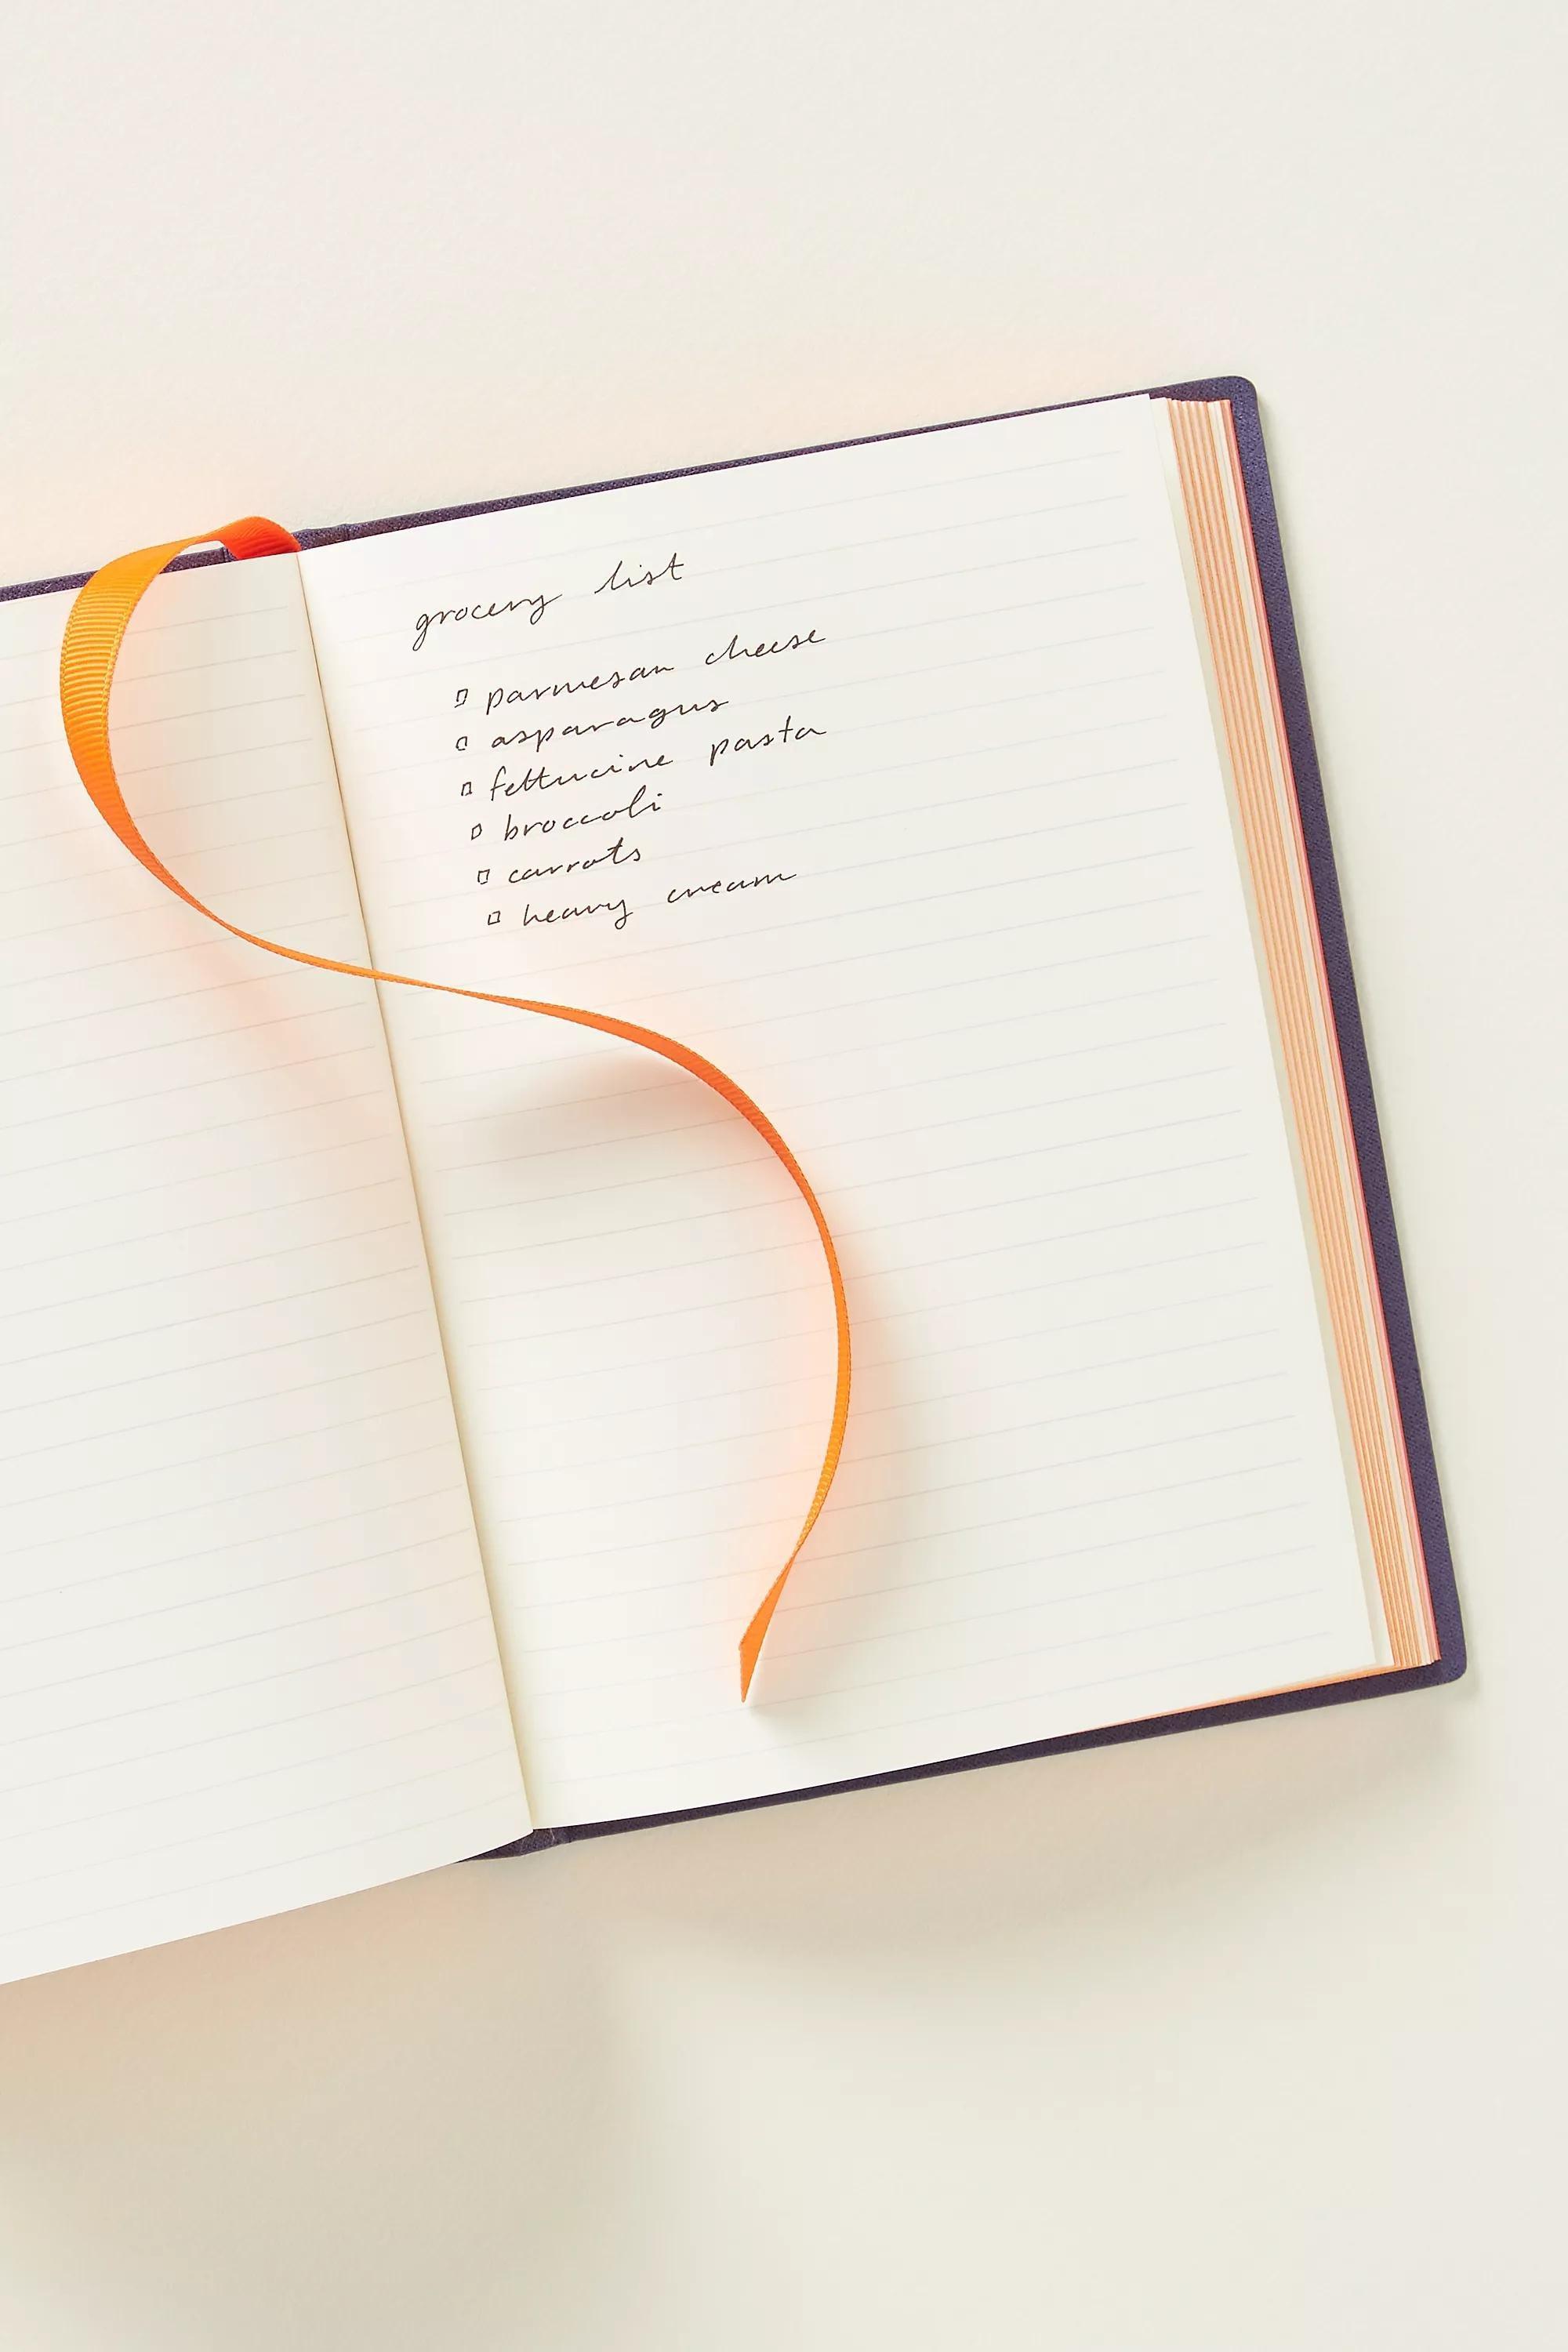 grocery list
parmesan cheese
asparagus
fettucine pasta
broccoli
carrots
heavy cream